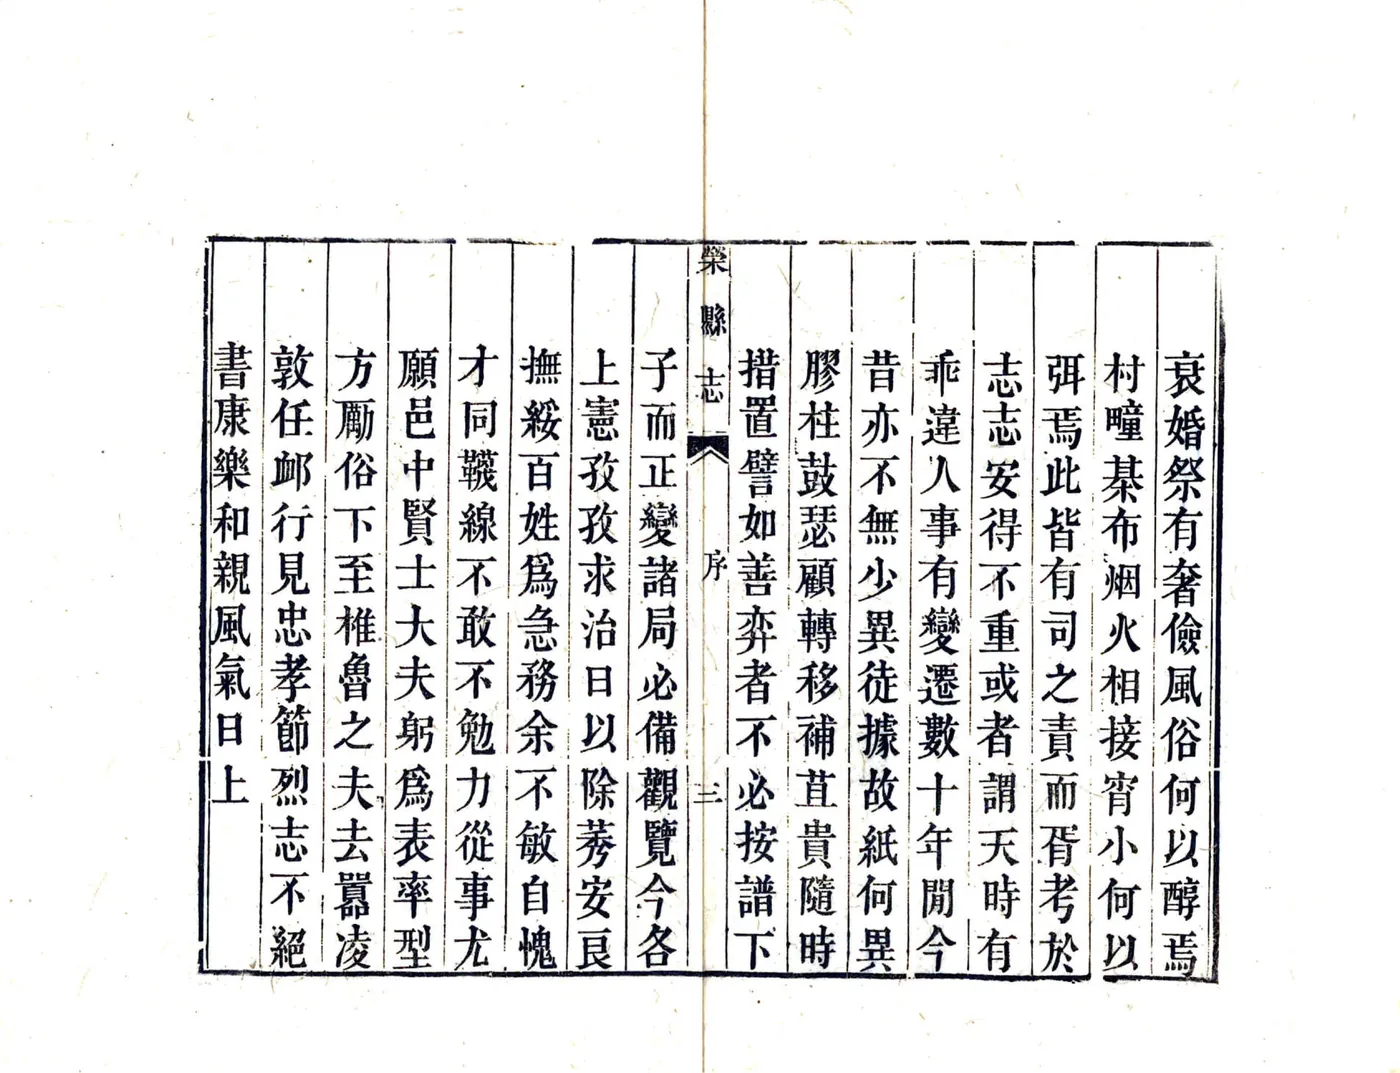 衰婚祭有奢儉風俗何以醇焉
村疃棊布烟火相接宵小何以
弭焉此皆有司之責而胥考於
志志安得不重或者謂天時有
乖違人事有變遷數十年閒今
昔亦不無少異徒據故紙何異
膠柱鼓瑟顧轉移補苴貴隨時
措置譬如善弈者不必按譜下
榮縣志 序 三
子而正變諸局必備觀覽今各
上憲孜孜求治日以除莠安良
撫綏百姓爲急務余不敏自愧
才同韈線不敢不勉力從事尤
願邑中賢士大夫躬爲表率型
方勵俗下至椎魯之夫去嚚凌
敦任卹行見忠孝節烈志不絕
書康樂和親風氣日上